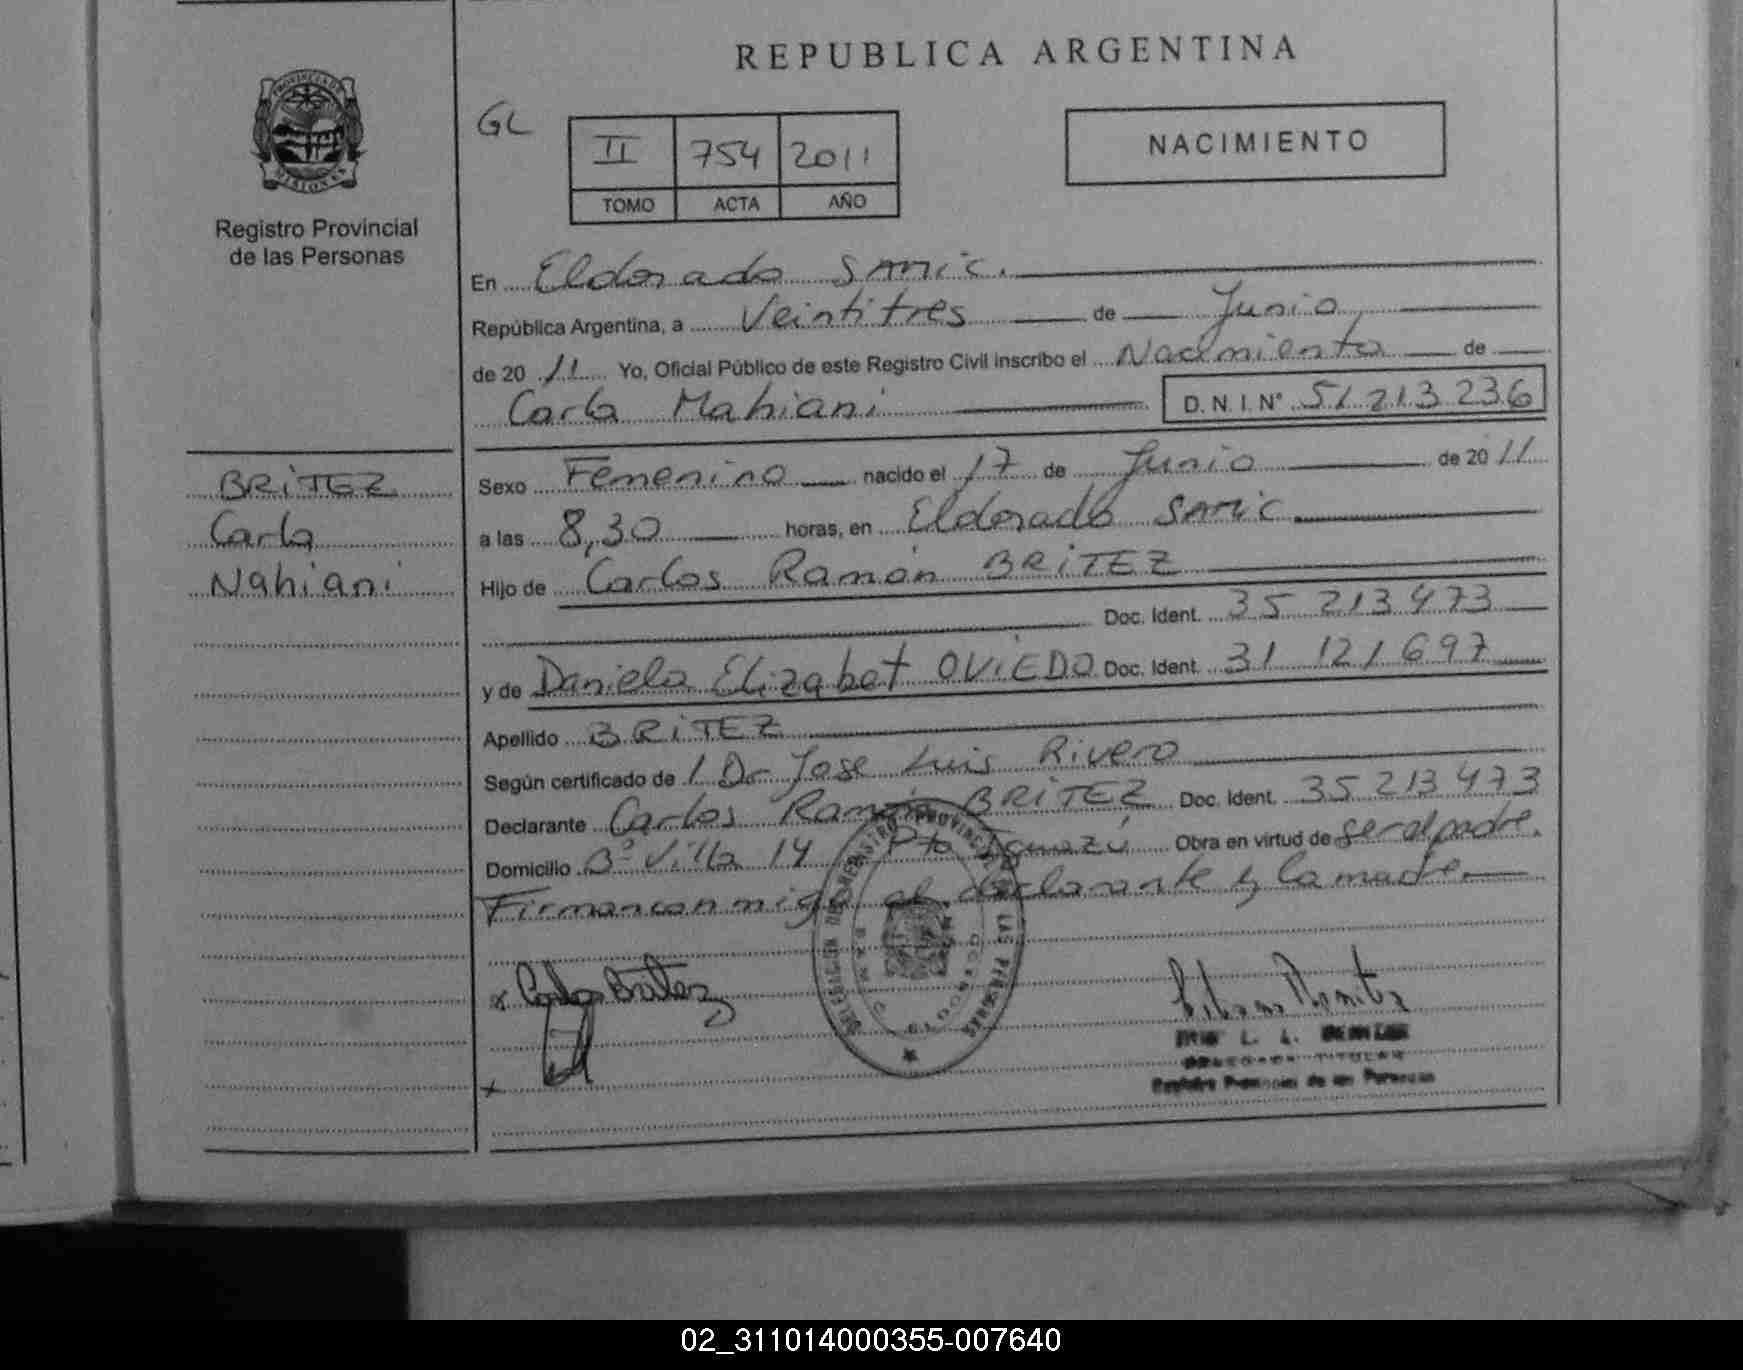 REPUBLICA ARGENTINA
PROVINCIA DE
MISIONES
Registro Provincial
de las Personas
GL
II 754 2011
TOMO ACTA AÑO
NACIMIENTO
En Eldorado SAMIC.
República Argentina, a Veintitres de Junio
de 20 11 Yo, Oficial Público de este Registro Civil inscribo el Nacimiento de
Carla Mahiani D.N.I.Nº 51 213 236
BRITEZ
Carla
Nahiani
Sexo Femenino nacido el 17 de Junio de 20 11
a las 8,30 horas, en Eldorado SAMIC
Hijo de Carlos Ramón BRITEZ
Doc. Ident. 35 213 473
y de Daniela Elizabet OVIEDO Doc. Ident. 31 121 697
Apellido BRITEZ
Según certificado de / Dr Jose Luis Rivero
Declarante Carlos Ramón BRITEZ Doc. Ident. 35 213 473
Domicilio Bº Villa 14 Pto Iguazú Obra en virtud de ser el padre.
Firman conmigo el declarante y la madre.
x Carlos Britez
x
DELEGADA TITULAR
Registro Provincial de las Personas
02_311014000355-007640